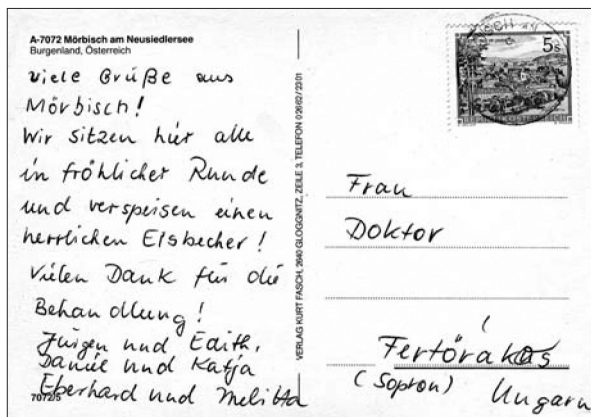 A-7072 Mörbisch am Neusiedlersee
Burgenland, Österreich
viele Grüße aus
Mörbisch!
Wir sitzen hier alle
in fröhlicher Runde
und verspeisen einen
herrlichen Eisbecher!
Vielen Dank für die
Behandlung!
Jürgen und Edith,
Daniel und Katja
Eberhard und Melitta
7072/5
VERLAG KURT FASCH, 2640 GLOGGNITZ, ZEILE 3, TELEFON 02662/2301
5 s
Frau
Doktor
Fertörákos
(Sopron) Ungarn